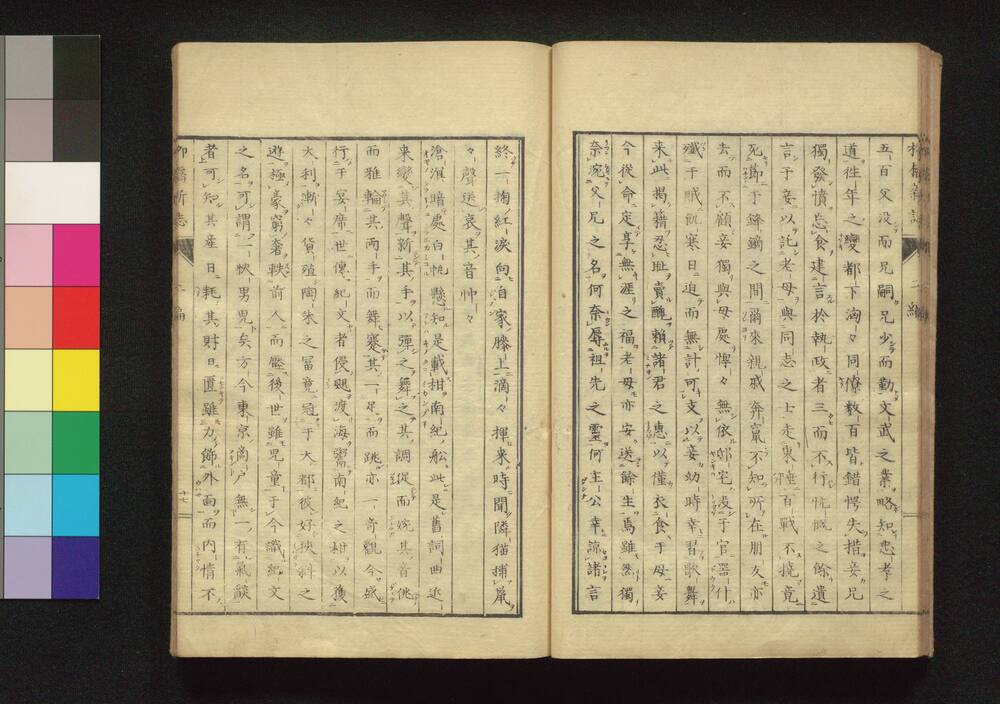 五百父没而兄嗣兄少而勤文武之業略知忠孝之
道往年之變都下洶々同僚数百皆錯愕失措妾兄
獨發憤忘食建言於執政者三而不行忼慨之餘遺
言于妾以託老母與同志之士走東陲百戰不撓竟
死節于鋒鏑之間爾来親戚奔竄不知所在朋友亦
去而不顧妾獨與母處惸々無依邸宅没于官器什
殲于賊飢寒日迫而無計可支以妾幼時幸習歌舞
来此揭籍忍耻賣醜賴諸君之惠以僅衣食于母妾
今從命定享無涯之福老母亦安送餘生焉雖然獨
奈涴父兄之名何奈辱祖先之靈何主公幸諒諸言
終一掬紅淚向自家膝上滴々揮来時聞隣猫捕鼠
々聲送哀其音忡々
滄溟暗處白帆懸知是載柑南紀舩此是舊詞曲近
来變其聲新其手以彈之舞之其調從而婉其音佻
而雅輪其両手而舞蹇其一足而跳亦一奇觀今盛
行于宴席世傳紀文者侵颶渡海鬻南紀之柑以獲
大利漸々貨殖陶朱之冨竟冠于大都彼好狹斜之
遊極豪窮奢軼前人而壓後世雖児童于今識紀文
之名可謂一快男児矣方今東京啇戸無一有氣燄
者可知其產日耗其財日匱雖力飾外面而内情不
柳橋新誌
二編
十七